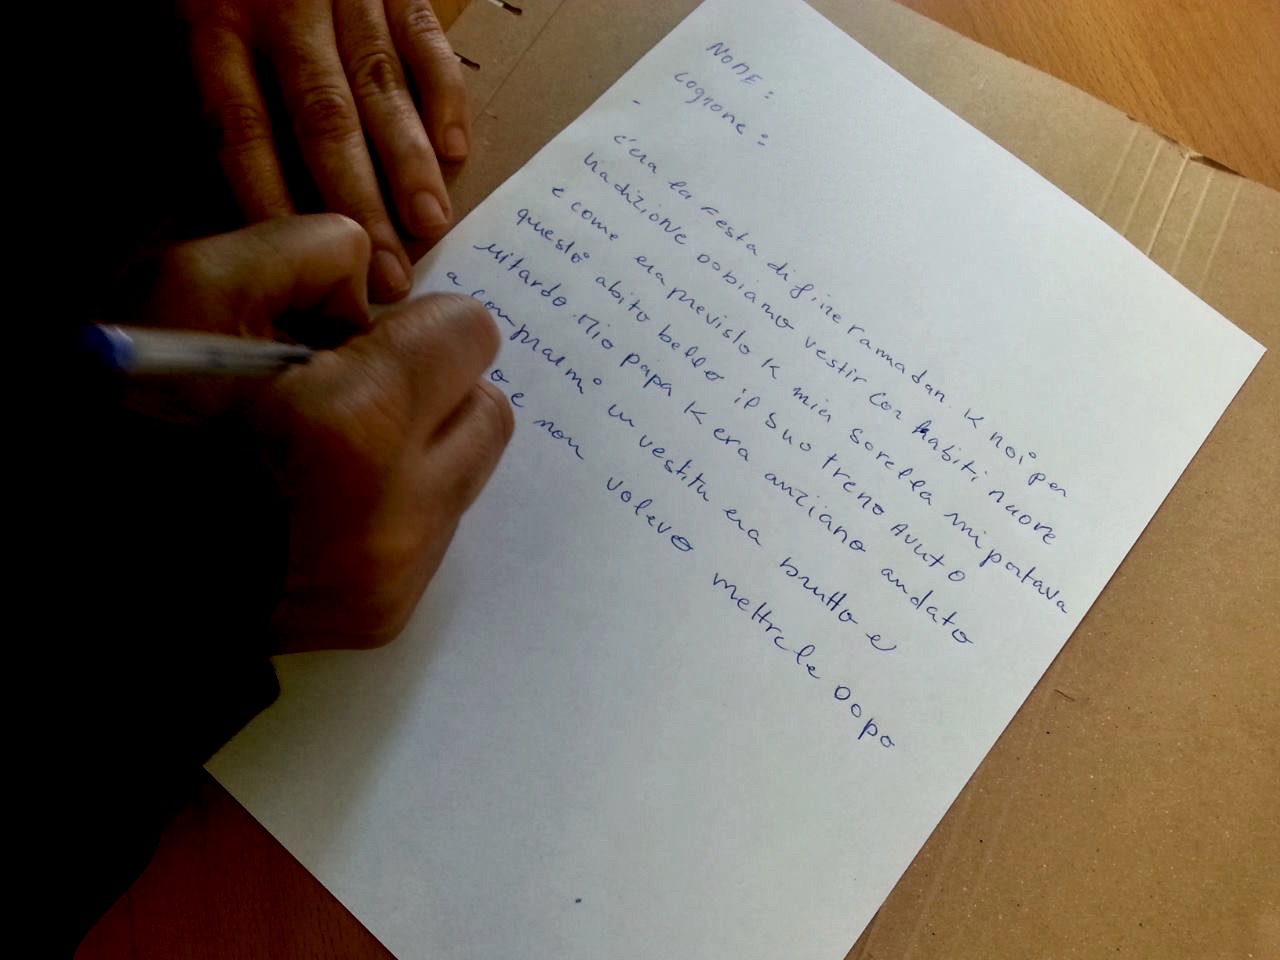 NOME :
Cognome :
-
c'era la festa di fine ramadan. K noi per
tradizione dobiamo vestir con habiti, nuove
e come era previsto K mia sorella mi portava
questo abito bello il suo treno AVUTO
ritardo. Mio papa K era anziano andato
a comprarmi un vestitu era brutto e
o e non volevo mettrele Dopo